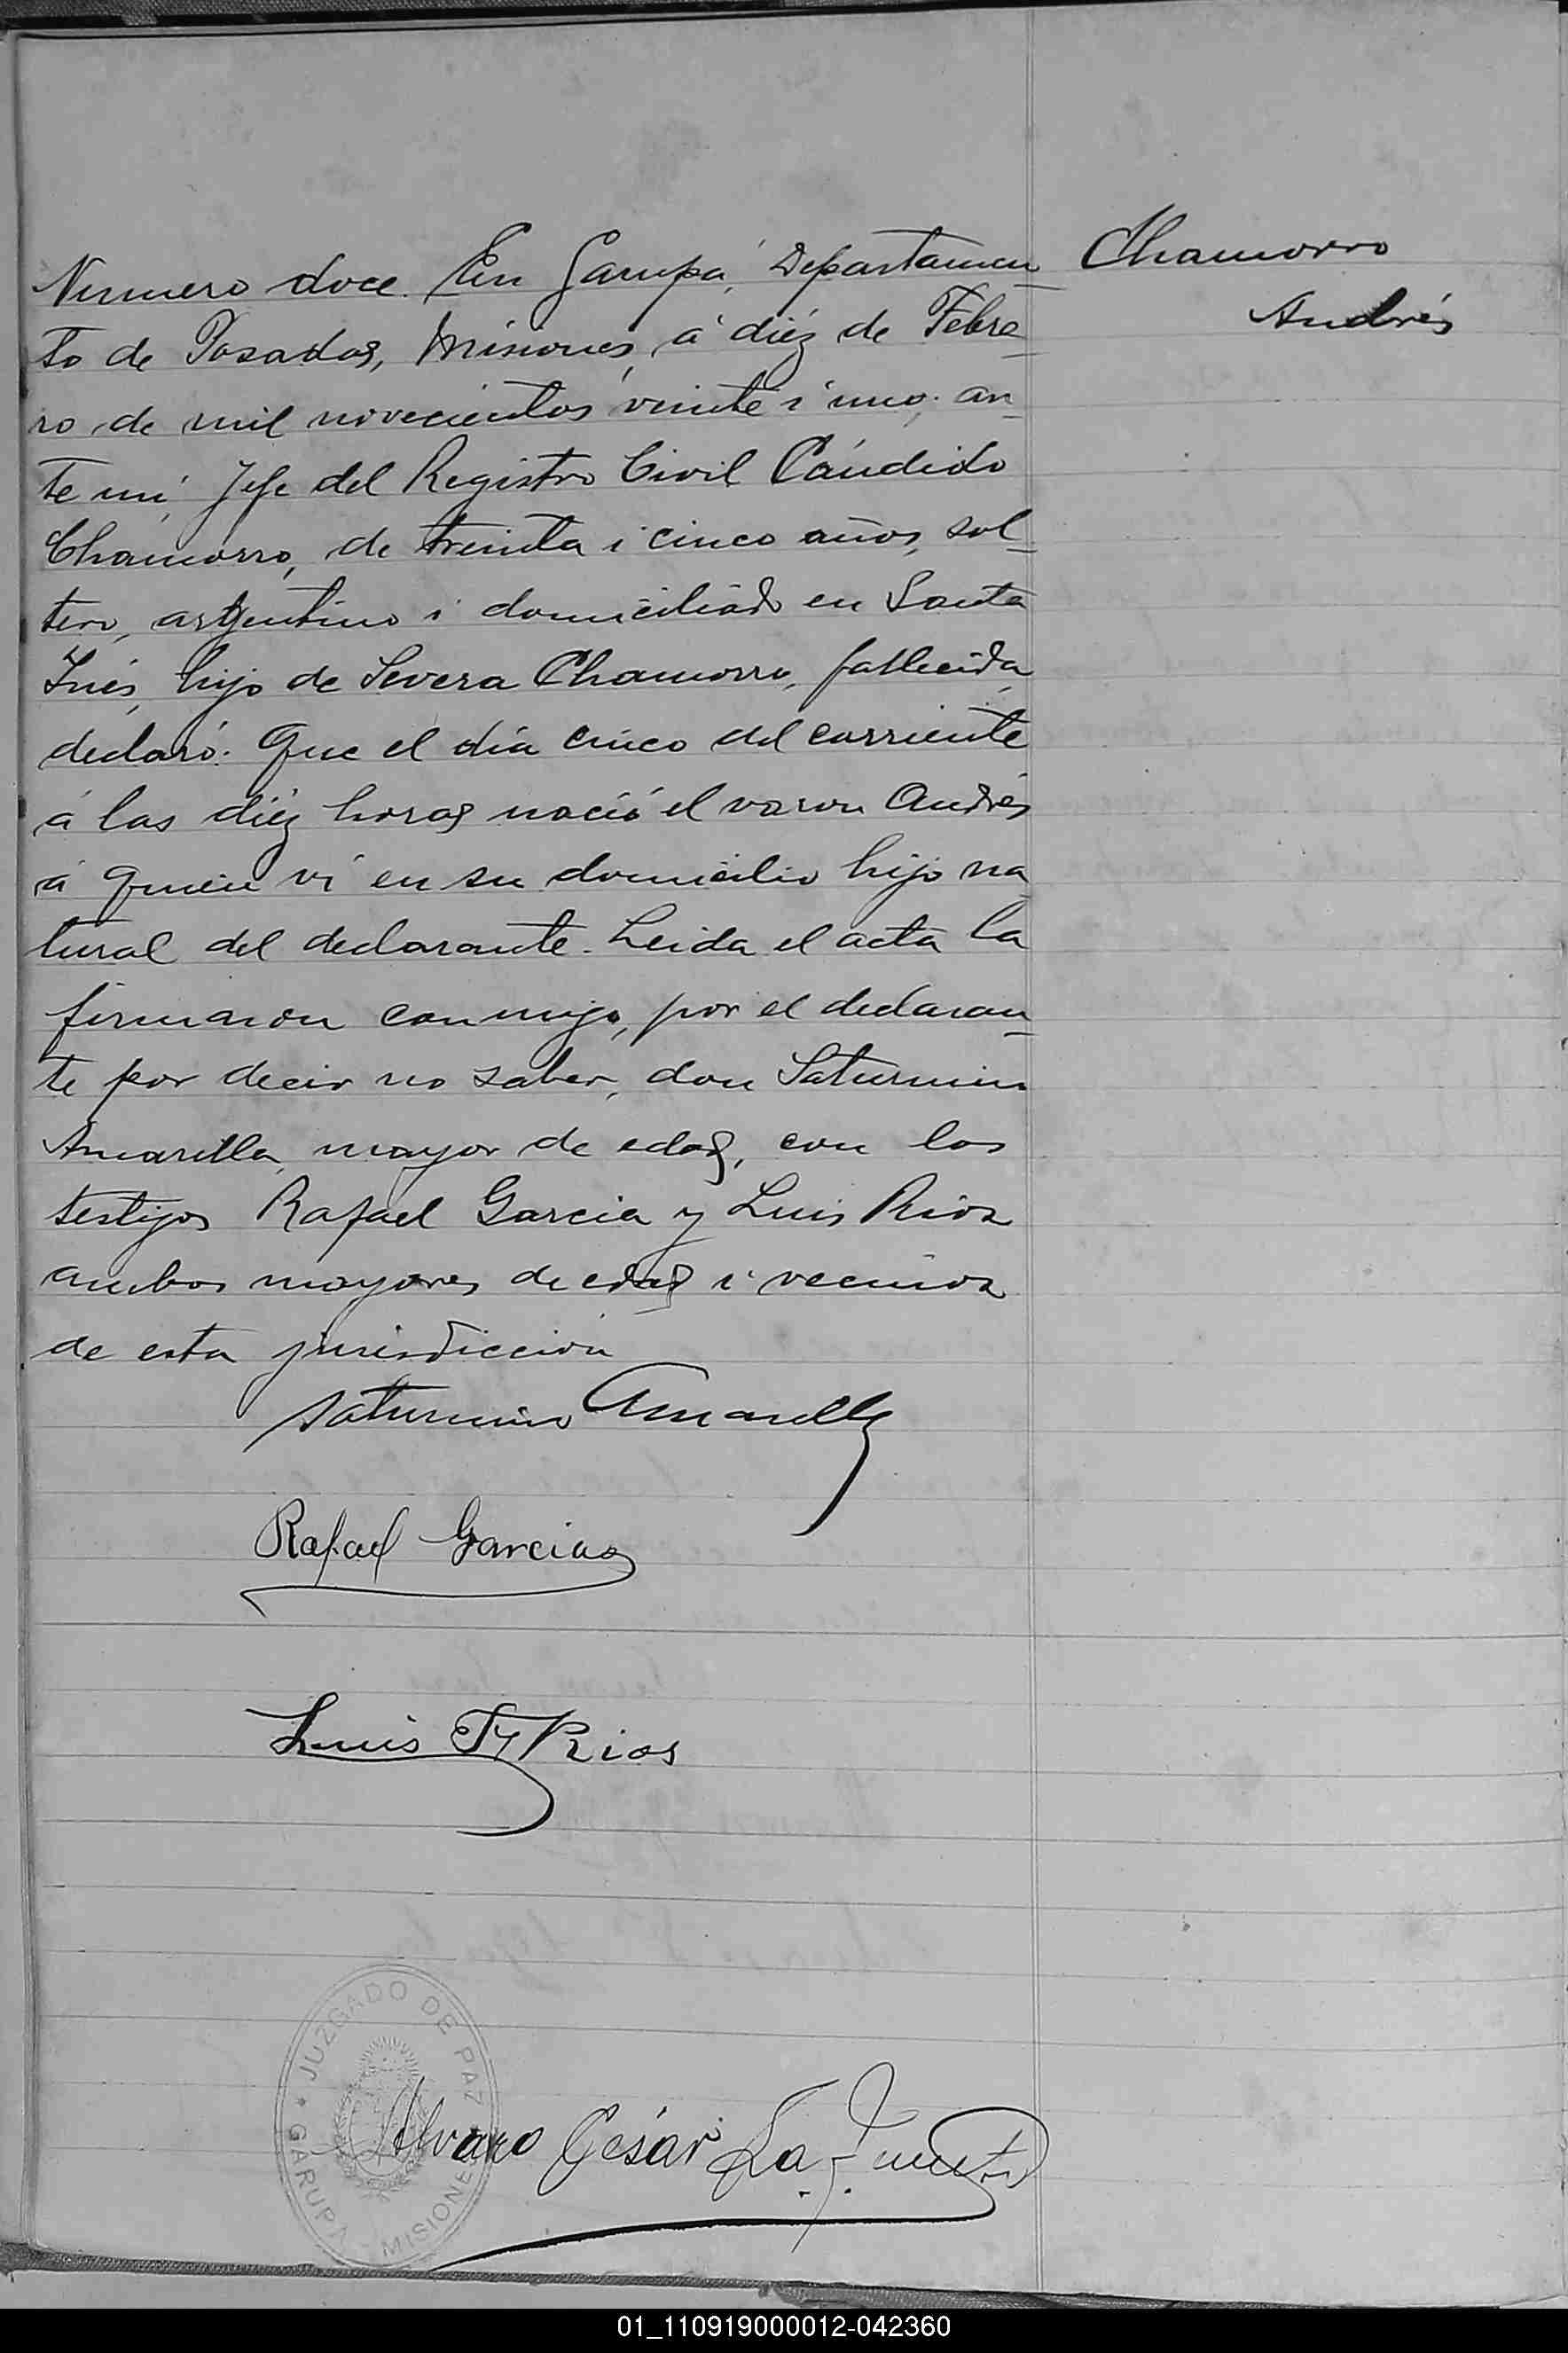 Numero doce. En Garupá, Departamen
Chamorro
Andrés
to de Posadas, Misiones, á diéz de Febre
ro de mil novecientos veinte i uno, an
te mi, Jefe del Registro Civil Cándido
Chamorro, de treinta i cinco años, sol
tero, argentino i domiciliado en Santa
Inés, hijo de Severa Chamorro, fallecida,
declaró: Que el día cinco del corriente
á las diéz horas nació el varon Andrés
á quien ví en su domicilio hijo na
tural del declarante. Leida el acta la
firmaron conmigo, por el declaran
te por decir no saber, don Saturnino
Amarilla, mayor de edad, con los
testigos Rafael Garcia y Luis Rios
ambos mayores de edad i vecinos
de esta jurisdicción
Saturnino Amarilla
Rafael Garcias
Luis Rios
JUZGADO DE PAZ
GARUPA MISIONES
Alvaro César La
01_110919000012-042360